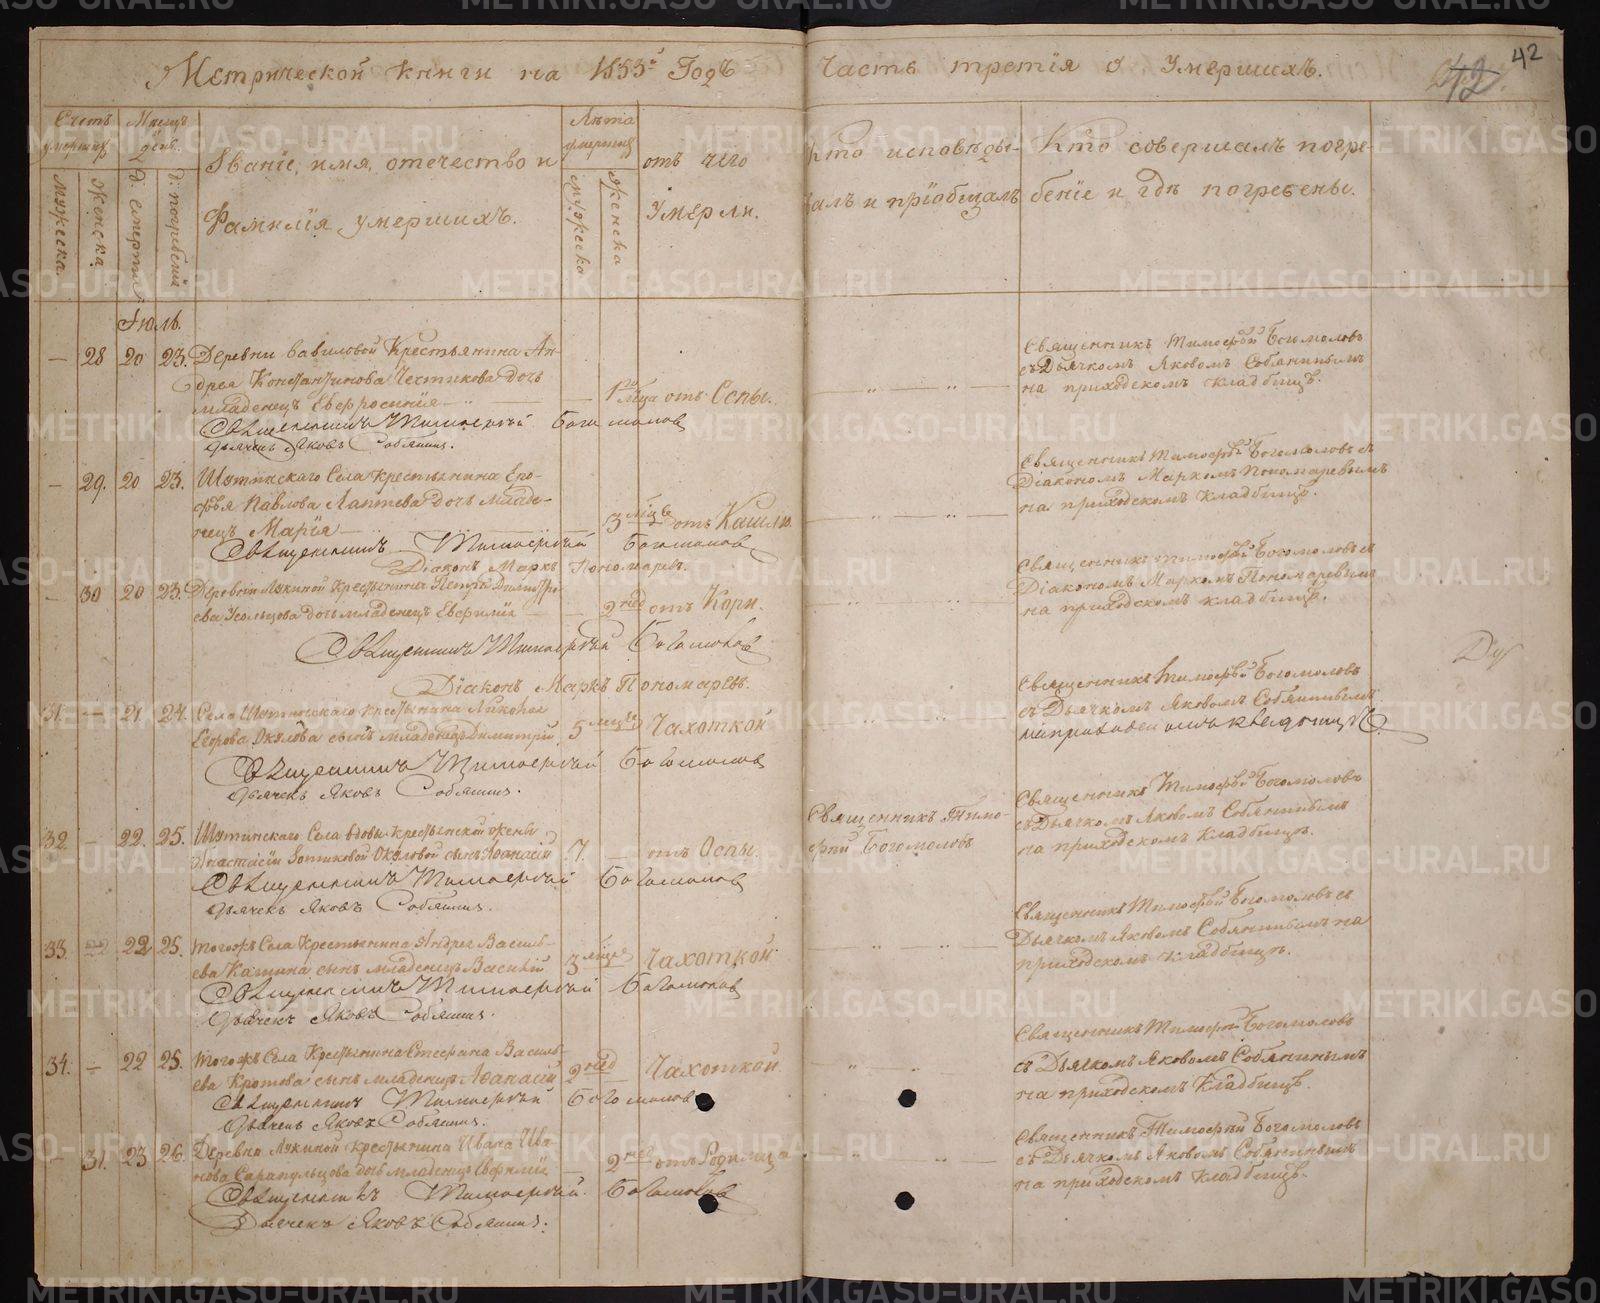 Метрической книги на 1853й Годъ
Часть третія о умершихъ.
42
42
Счетъ умершихъ
Мужеска.
Женска.
Мѣсяцъ и день.
смерти
погребенія
Званіе, имя, отечество и
Фамилія умершихъ.
Лѣта умершихъ
мужеска
женска
отъ чего
умерли.
Кто исповѣды-
валъ и пріобщалъ
Кто совершалъ погре-
беніе и гдѣ погребены.
Іюль.
28 20 23. Деревни Вавиловой Крестьянина Ан-
дрея Константинова Чистикова дочь
младенецъ Евфросинія
1го мца отъ Оспы.
Священникъ Тимофей Богомоловъ
съ Дьячкомъ Яковомъ Собянинымъ
на приходскомъ кладбищѣ.
Священникъ Тимофей Богомоловъ
Дьячекъ Яковъ Собянинъ.
29. 20 23. Шутинскаго Села крестьянина Еро-
фѣя Павлова Лаптева дочь младе-
нецъ Марія
3 мцъ отъ Кашлю.
Священникъ Тимофей Богомоловъ съ
Діакономъ Маркомъ Пономаревымъ
на приходскомъ кладбищѣ.
Священникъ Тимофей Богомоловъ
Діаконъ Маркъ Пономаревъ.
30 20 23. Деревни Лукиной крестьянина Петра Дмитрі-
ева Усольцова дочь младенецъ Евфимія
2 нед отъ Кори.
Священникъ Тимофей Богомоловъ съ
Діакономъ Маркомъ Пономаревымъ
на приходскомъ кладбищѣ.
Священникъ Тимофей Богомоловъ
Діаконъ Маркъ Пономаревъ.
31. 21 24. Села Шутинскаго крестьянина Николая
Егорова Окулова сынъ младенецъ Димитрій
5 мцъ Чахоткой
Священникъ Тимофей Богомоловъ
съ Дьячкомъ Яковомъ Собянинымъ
на приходскомъ кладбищѣ
Священникъ Тимофей Богомоловъ
Дьячекъ Яковъ Собянинъ.
32. 22. 25. Шутинскаго Села вдовы крестьянской жены
Анастасіи Зотиковой Окуловой сынъ Афанасій
7. отъ Оспы.
Священникъ Тимо-
фей Богомоловъ
Священникъ Тимофей Богомоловъ
съ Дьячкомъ Яковомъ Собянинымъ
на приходскомъ кладбищѣ.
Священникъ Тимофей Богомоловъ
Дьячекъ Яковъ Собянинъ.
33. 22 25. Тогожъ Села Крестьянина Андрея Василь-
ева Кашина сынъ младенецъ Василій
3 мцъ Чахоткой
Священникъ Тимофей Богомоловъ съ
Дьячкомъ Яковомъ Собянинымъ на
приходскомъ кладбищѣ.
Священникъ Тимофей Богомоловъ
Дьячекъ Яковъ Собянинъ.
34. 22 25. Тогожъ Села Крестьянина Стефана Василь-
ева Кротова сынъ младенецъ Афанасій
2 нед Чахоткой
Священникъ Тимофей Богомоловъ
съ Дьячкомъ Яковомъ Собянинымъ
на приходскомъ кладбищѣ.
Священникъ Тимофей Богомоловъ
Дьячекъ Яковъ Собянинъ.
31. 23 26. Деревни Лукиной крестьянина Ивана Ива-
нова Сарапульцова дочь младенецъ Евфимія
2 нед отъ Родимца
Священникъ Тимофей Богомоловъ
съ Дьячкомъ Яковомъ Собянинымъ
на приходскомъ кладбищѣ.
Священникъ Тимофей Богомоловъ
Дьячекъ Яковъ Собянинъ.
METRIKI.GASO-URAL.RU